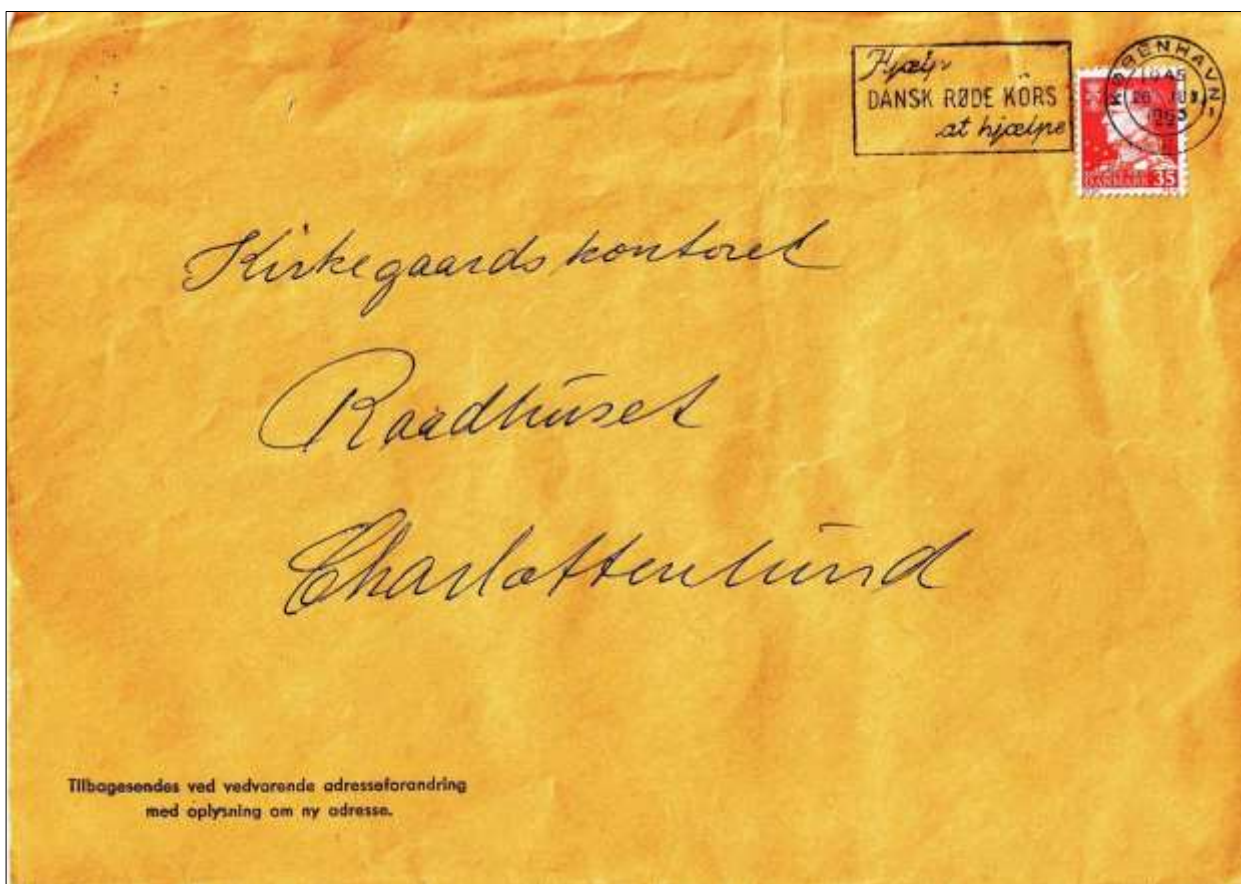 Hjælp
DANSK RØDE KÖRS
at hjælpe
KØBENHAVN
1963
DANMARK 35
Kirkegaardskontoret
Raadhuset
Charlottenlund
Tilbagesendes ved vedvarende adresseforandring
med oplysning om ny adresse.